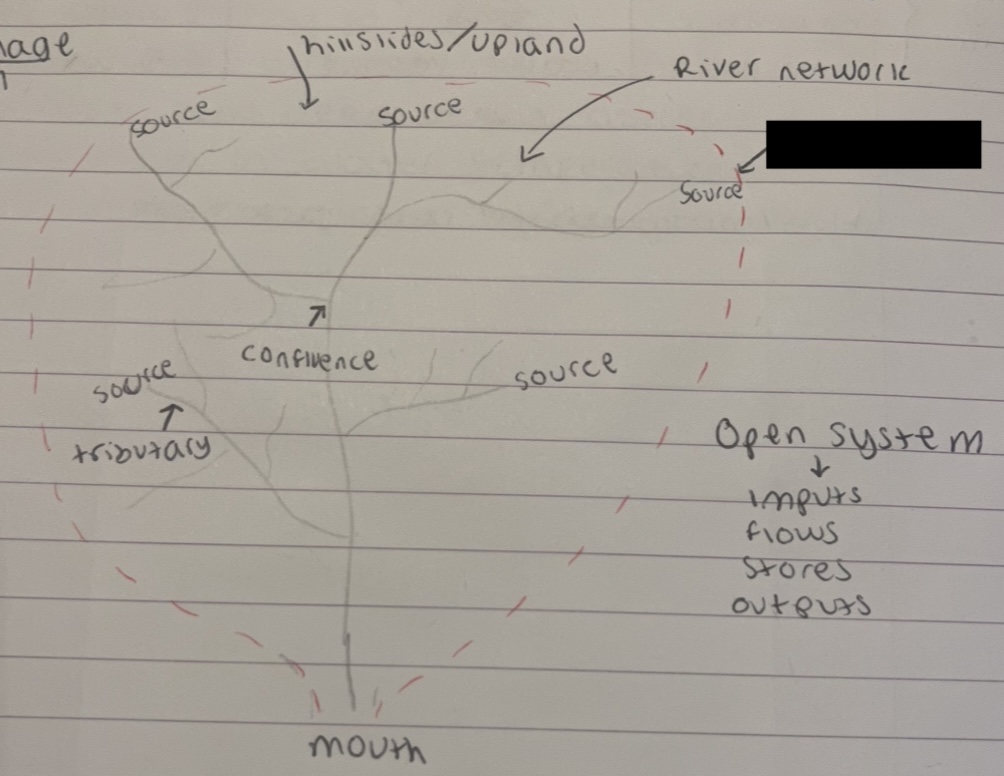 hillslides/upland
River network
source
source
source
confluence
source
source
tributary
Open system
inputs
flows
stores
outputs
mouth